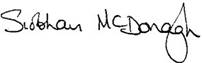 Siobhain McDonagh